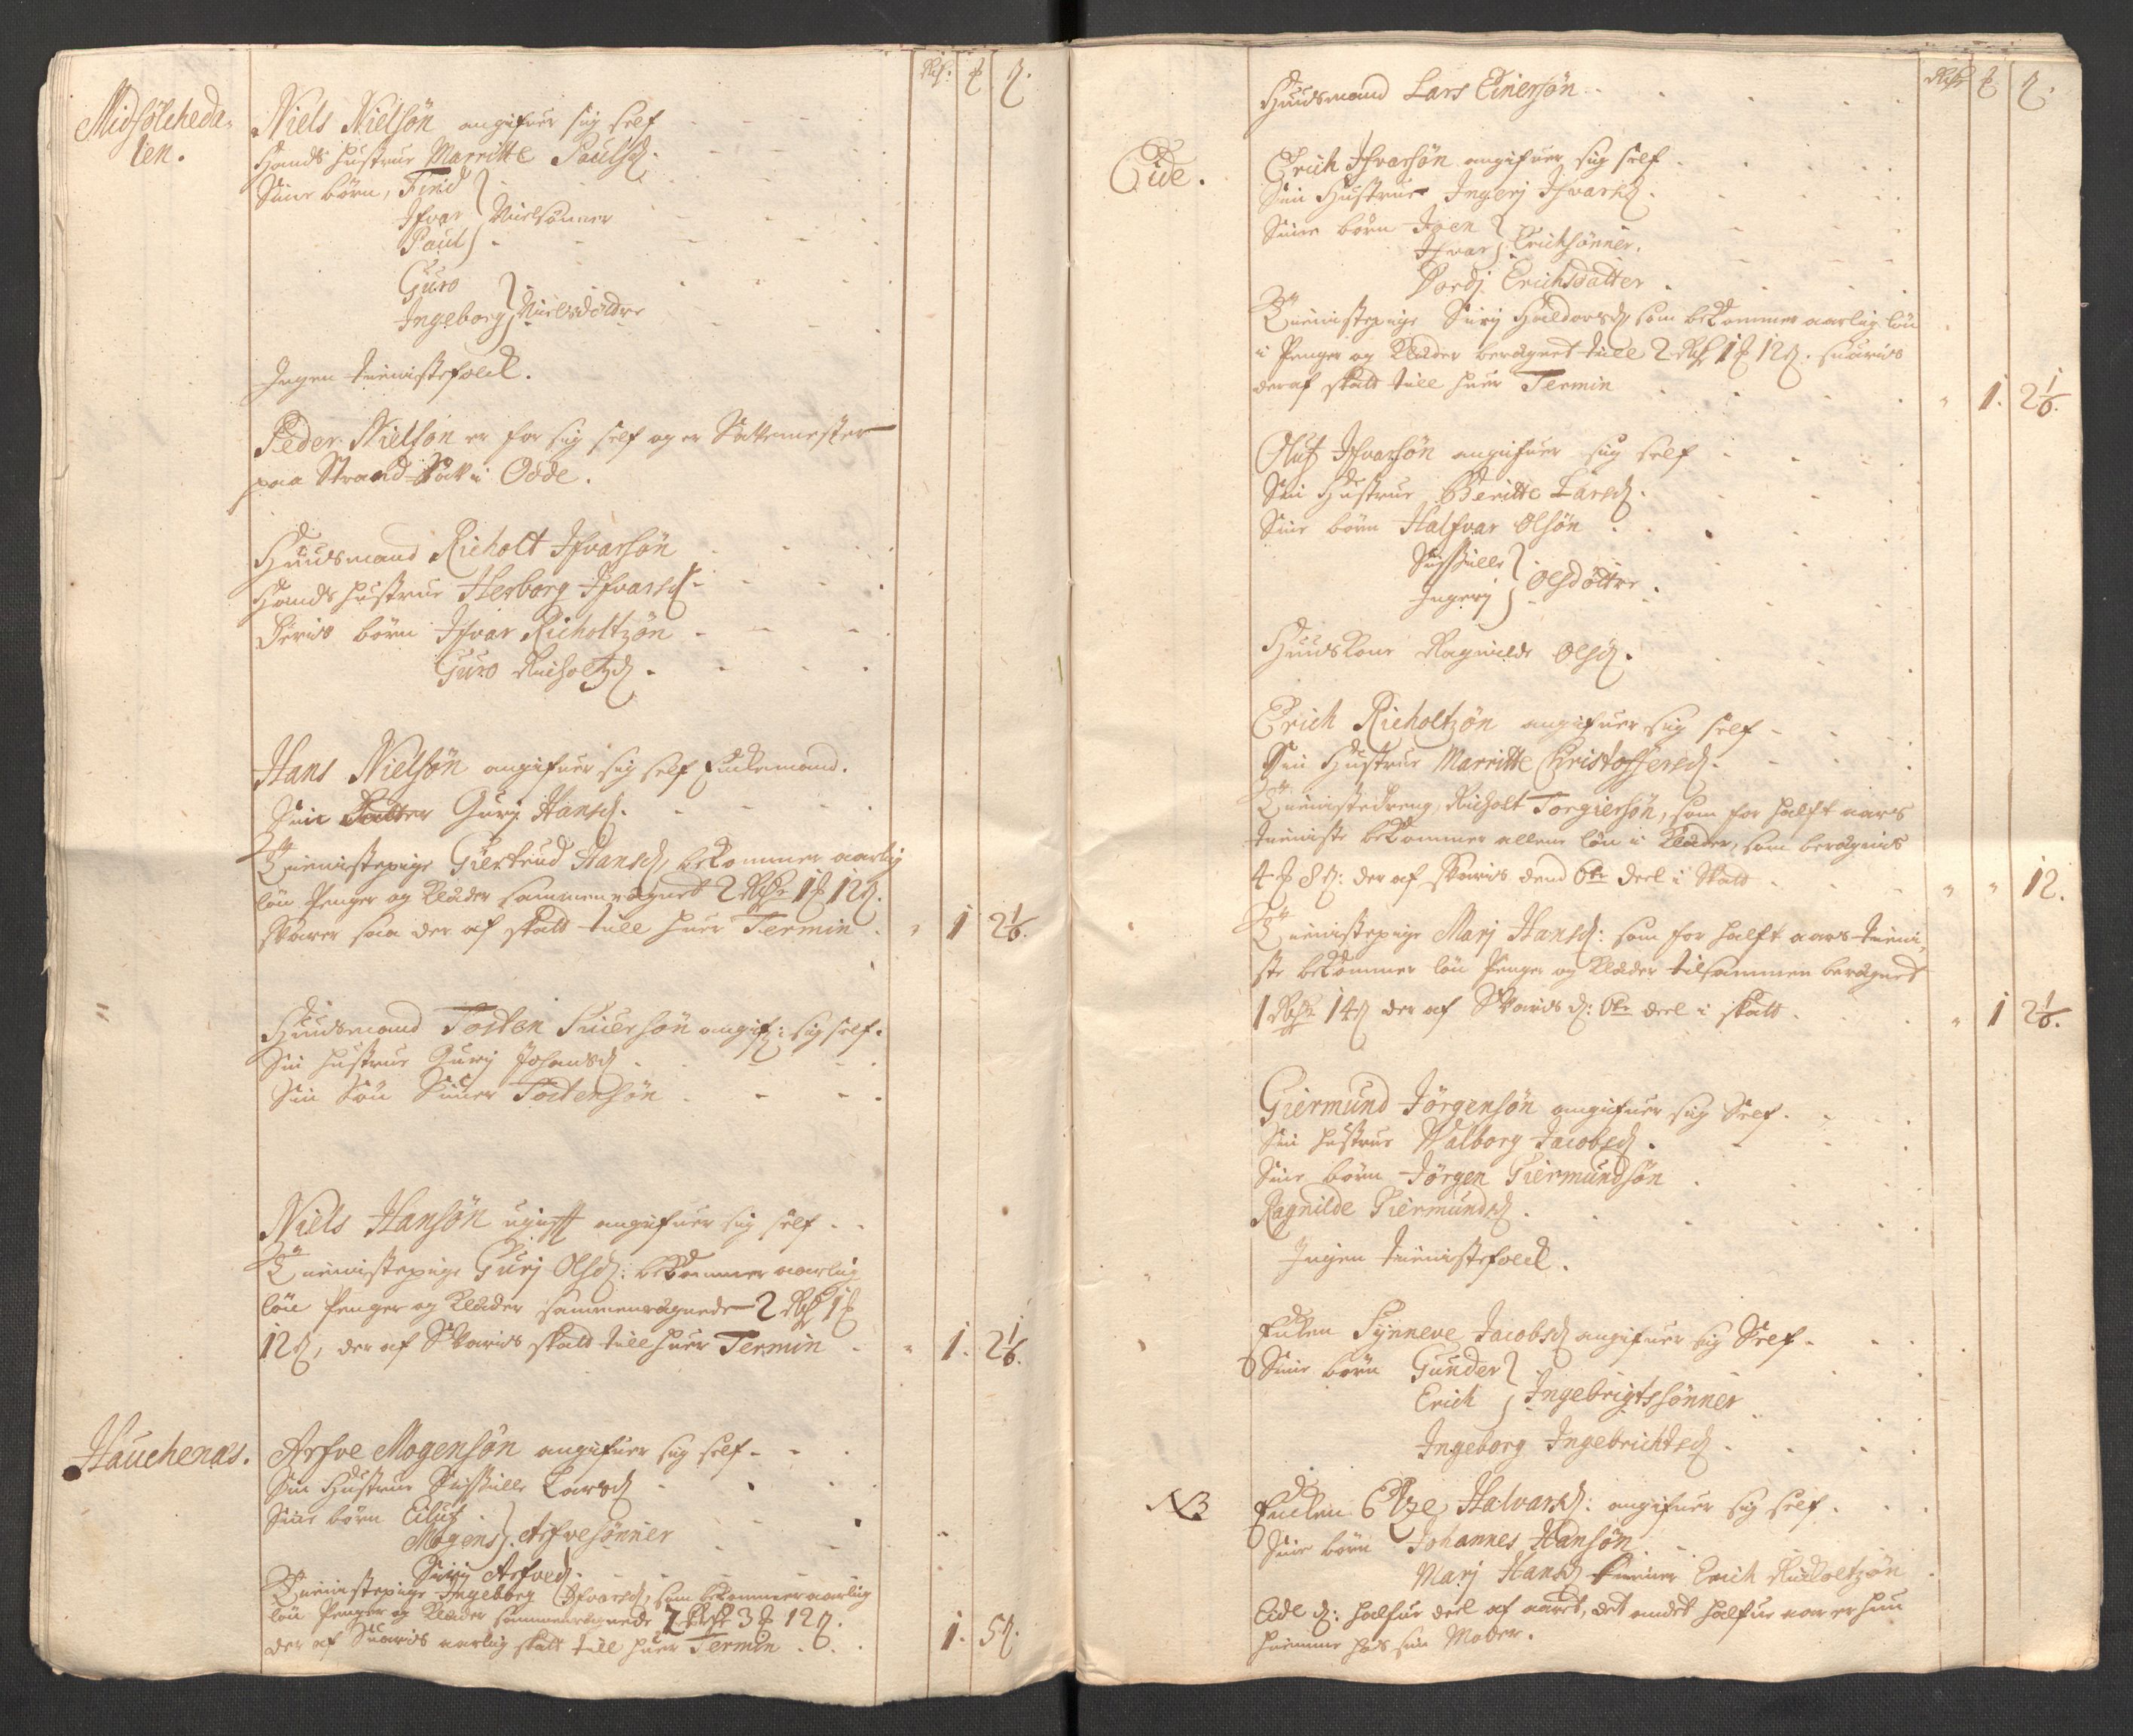 Rdr. ℔ ß.
Midsølcheda-
len.
Niels Nielsøn angifuer sig self
Hands hustrue Marritte Paulsd.
Sine børn, Find
Ifvar } Nielsønner
Paul
Guro
Ingeborg } Nielsdøttre
Ingen tieniste folck.
Peder Nielson er for sig self og er
paa Strand i Odde.
Huusmand Richolt Ifvarsøn
Hands hustrue Herborg Ifvarsd.
Deris børn Ifvar Richoltzøn
Guro Richoltzd.
Hans Nielsøn angifuer sig self Enckemand.
Sin Datter Guri Hansd.
Tienistepige Giertrud Hansd, bekommer aarlig
løn Penger og Klæder sammenregnet 2 Rdr 1 ℔ 12 ß.
Svarer saa der af skatt till huer Termin " 1 2 1/6.
Huusmand Tosten Siversøn angif: sig self.
Sin hustrue Guri Johansd
Sin Søn Siver Tostensøn
Niels Hansøn ugift angifuer sig self
Tienistepige Gurj Olsd: bekommer aarlig
løn Penger og Klæder sammenregnede 2 Rdr 1 ℔
12 ß, der af Svaris skatt till huer Termin " 1. 2 1/6.
Hauchenæs.
Arfve Mogensøn angifuer sig self
Sin Hustrue Larsd
Sine børn Eiluf
Mogens } Arfvesønner
Siri Arfved.
Tienistepige Ingeborg Ifvarsd, som bekommer aarlig
løn Penger og Klæder sammenregnede 2 Rdr 3 ℔ 12 ß.
der af Suaris aarlig skatt till huer Termin 1. 5 ß.
Rdr ℔ ß.
Huusmand Lars Einersøn
Eide.
Erich Ifvarsøn angifuer sig self
Sin Hustrue Ingerj Ifvarsd.
Sine børn Joen
Ifvar } Erichsønner.
Dordj Erichsdatter
Tienistepige Sirj Haldorsd, som bekommer aarlig løn
i Penger og Klæder beregnet till 2 Rdr 1 ℔ 12 ß. suaris
deraf skatt till huer Termin " 1. 2 1/6.
Oluf Ifvarsøn angifuer sig self
Sin Hustrue Beritte Larsd.
Sine børn Halfvar Olsøn
Ingerj } Olsdøttre.
Huuskone Ragnilde Olsd.
Erich Richoltzøn angifuer sig self
Sin Hustrue Marritte Christoffersd.
Tienistedreng Richolt Torgiersøn, som for halft aars
tieniste bekommer allene løn i Klæder, som beregnis
4 ℔ 8 ß: der af Svaris dend 6te deel i Skatt " " 12.
Tienistepige Marj Hansd: som for halft aars tieni-
ste bekommer løn Penger og Klæder tilsammen beregnet
1 Rdr 14 ß der af Svaris d: 6te deel i skatt " 1 2 1/6.
Giermund Jørgensøn angifuer sig Self.
Sin hustrue Walborg Jacobsd.
Sine børn Jørgen Giermundsøn
Ragnilde Giermundsd.
Ingen tienistefolck.
Encken Synneve Jacobsd angifuer sig Self
Sine børn Gunder
Erich } Ingebrigtssønner
Ingeborg Ingebrichtsd.
NB Encken Elze Halvarsd: angifuer sig self.
Sine børn Johannes Hansøn
Marj Hansd tiener Erich Richoltzøn
Eide d: halfue deel af aaret, det andet halfue aar er hun
hiemme hos sin Moder.